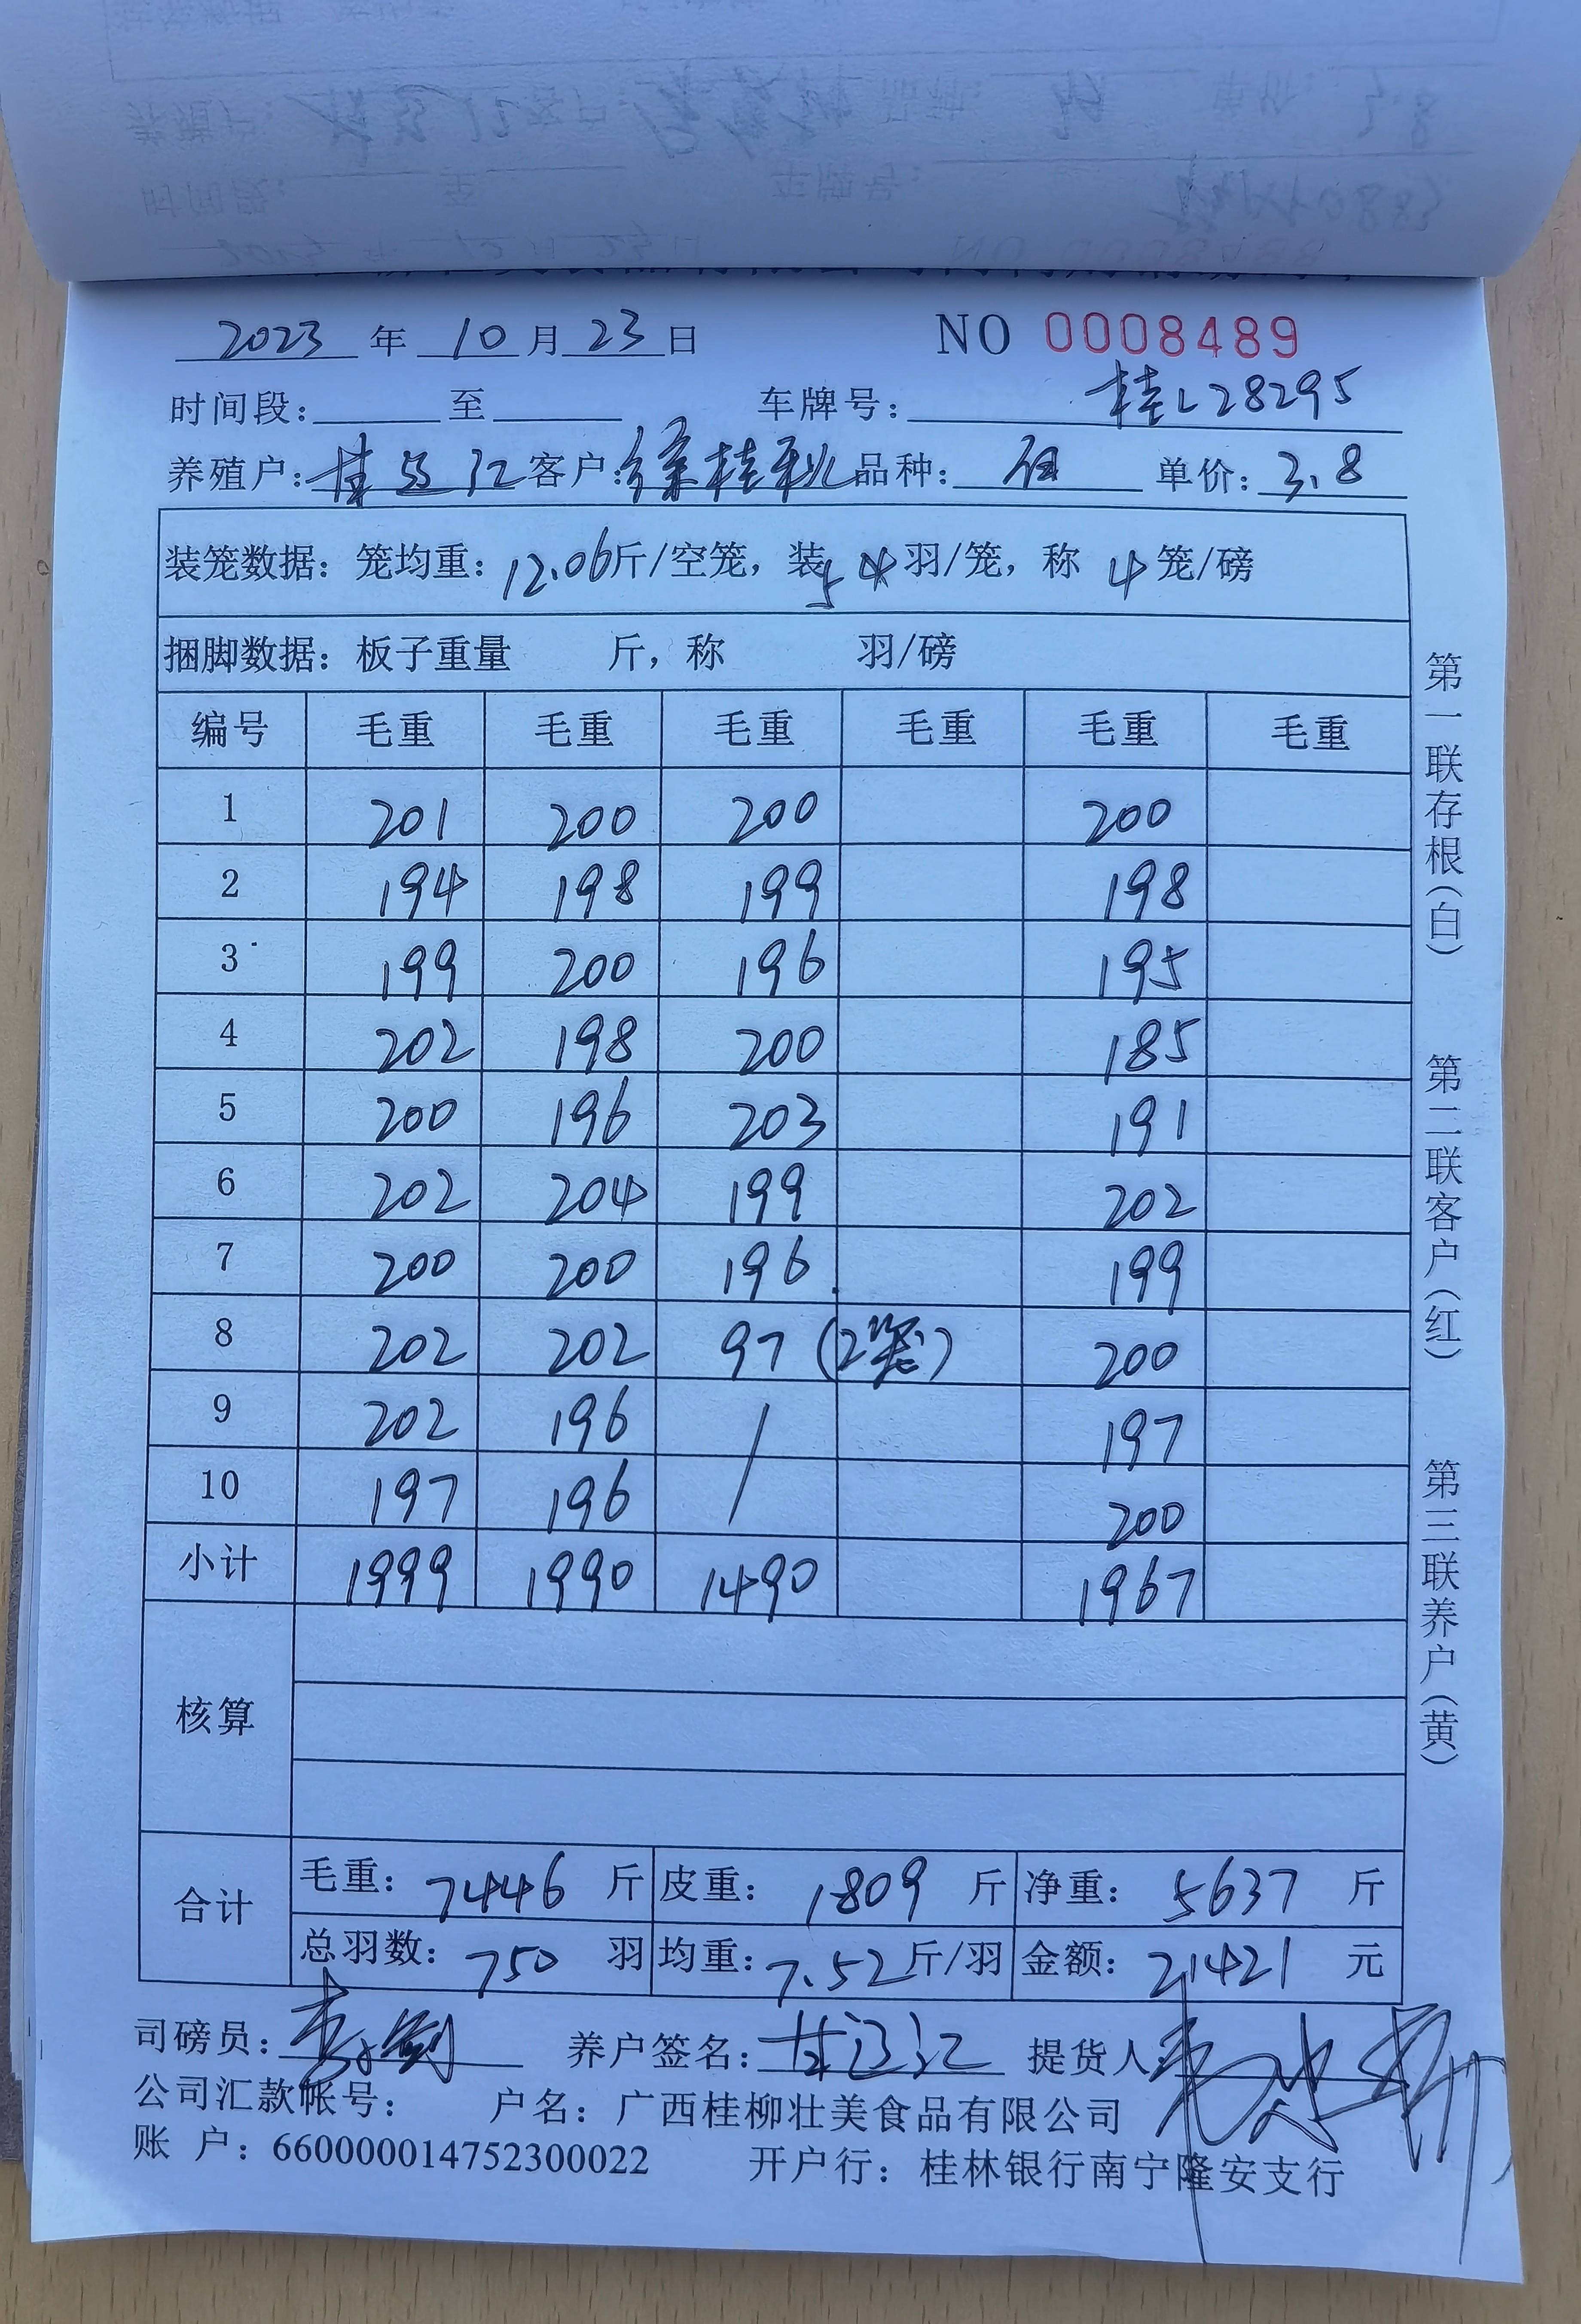 2023 年 10 月 23 日 NO 0008489
时间段: 至 车牌号: 桂L28295
养殖户: 客户: 徐桂秋 品种: 单价: 3.8
装笼数据: 笼均重: 12.06斤/空笼, 装 5 羽/笼, 称 4 笼/磅
捆脚数据: 板子重量 斤, 称 羽/磅
编号 毛重 毛重 毛重 毛重 毛重 毛重
1 201 200 200 200
2 194 198 199 198
3 199 200 196 195
4 202 198 200 185
5 200 196 203 191
6 202 204 199 202
7 200 200 196 199
8 202 202 97 (2笼) 200
9 202 196 / 197
10 197 196 200
小计 1999 1990 1490 1967
核算
合计
毛重: 7446 斤 皮重: 1809 斤 净重: 5637 斤
总羽数: 750 羽 均重: 7.52斤/羽 金额: 21421 元
司磅员: 养户签名: 提货人:
公司汇款帐号: 户名: 广西桂柳壮美食品有限公司
账 户: 660000014752300022 开户行: 桂林银行南宁隆安支行
第一联存根(白) 第二联客户(红) 第三联养户(黄)